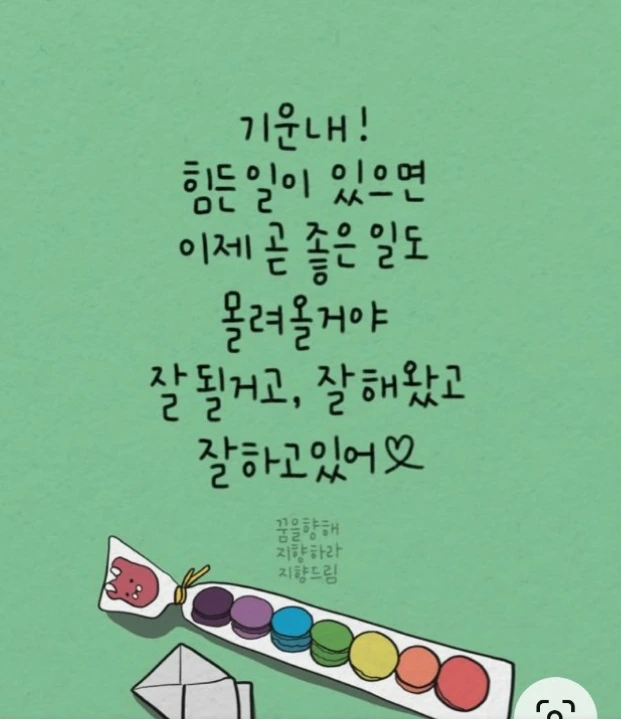 기운내!
힘든일이 있으면
이제 곧 좋은 일도
몰려올거야
잘 될거고, 잘해왔고
잘하고있어♡
꿈을향해
지향하라
지향드림